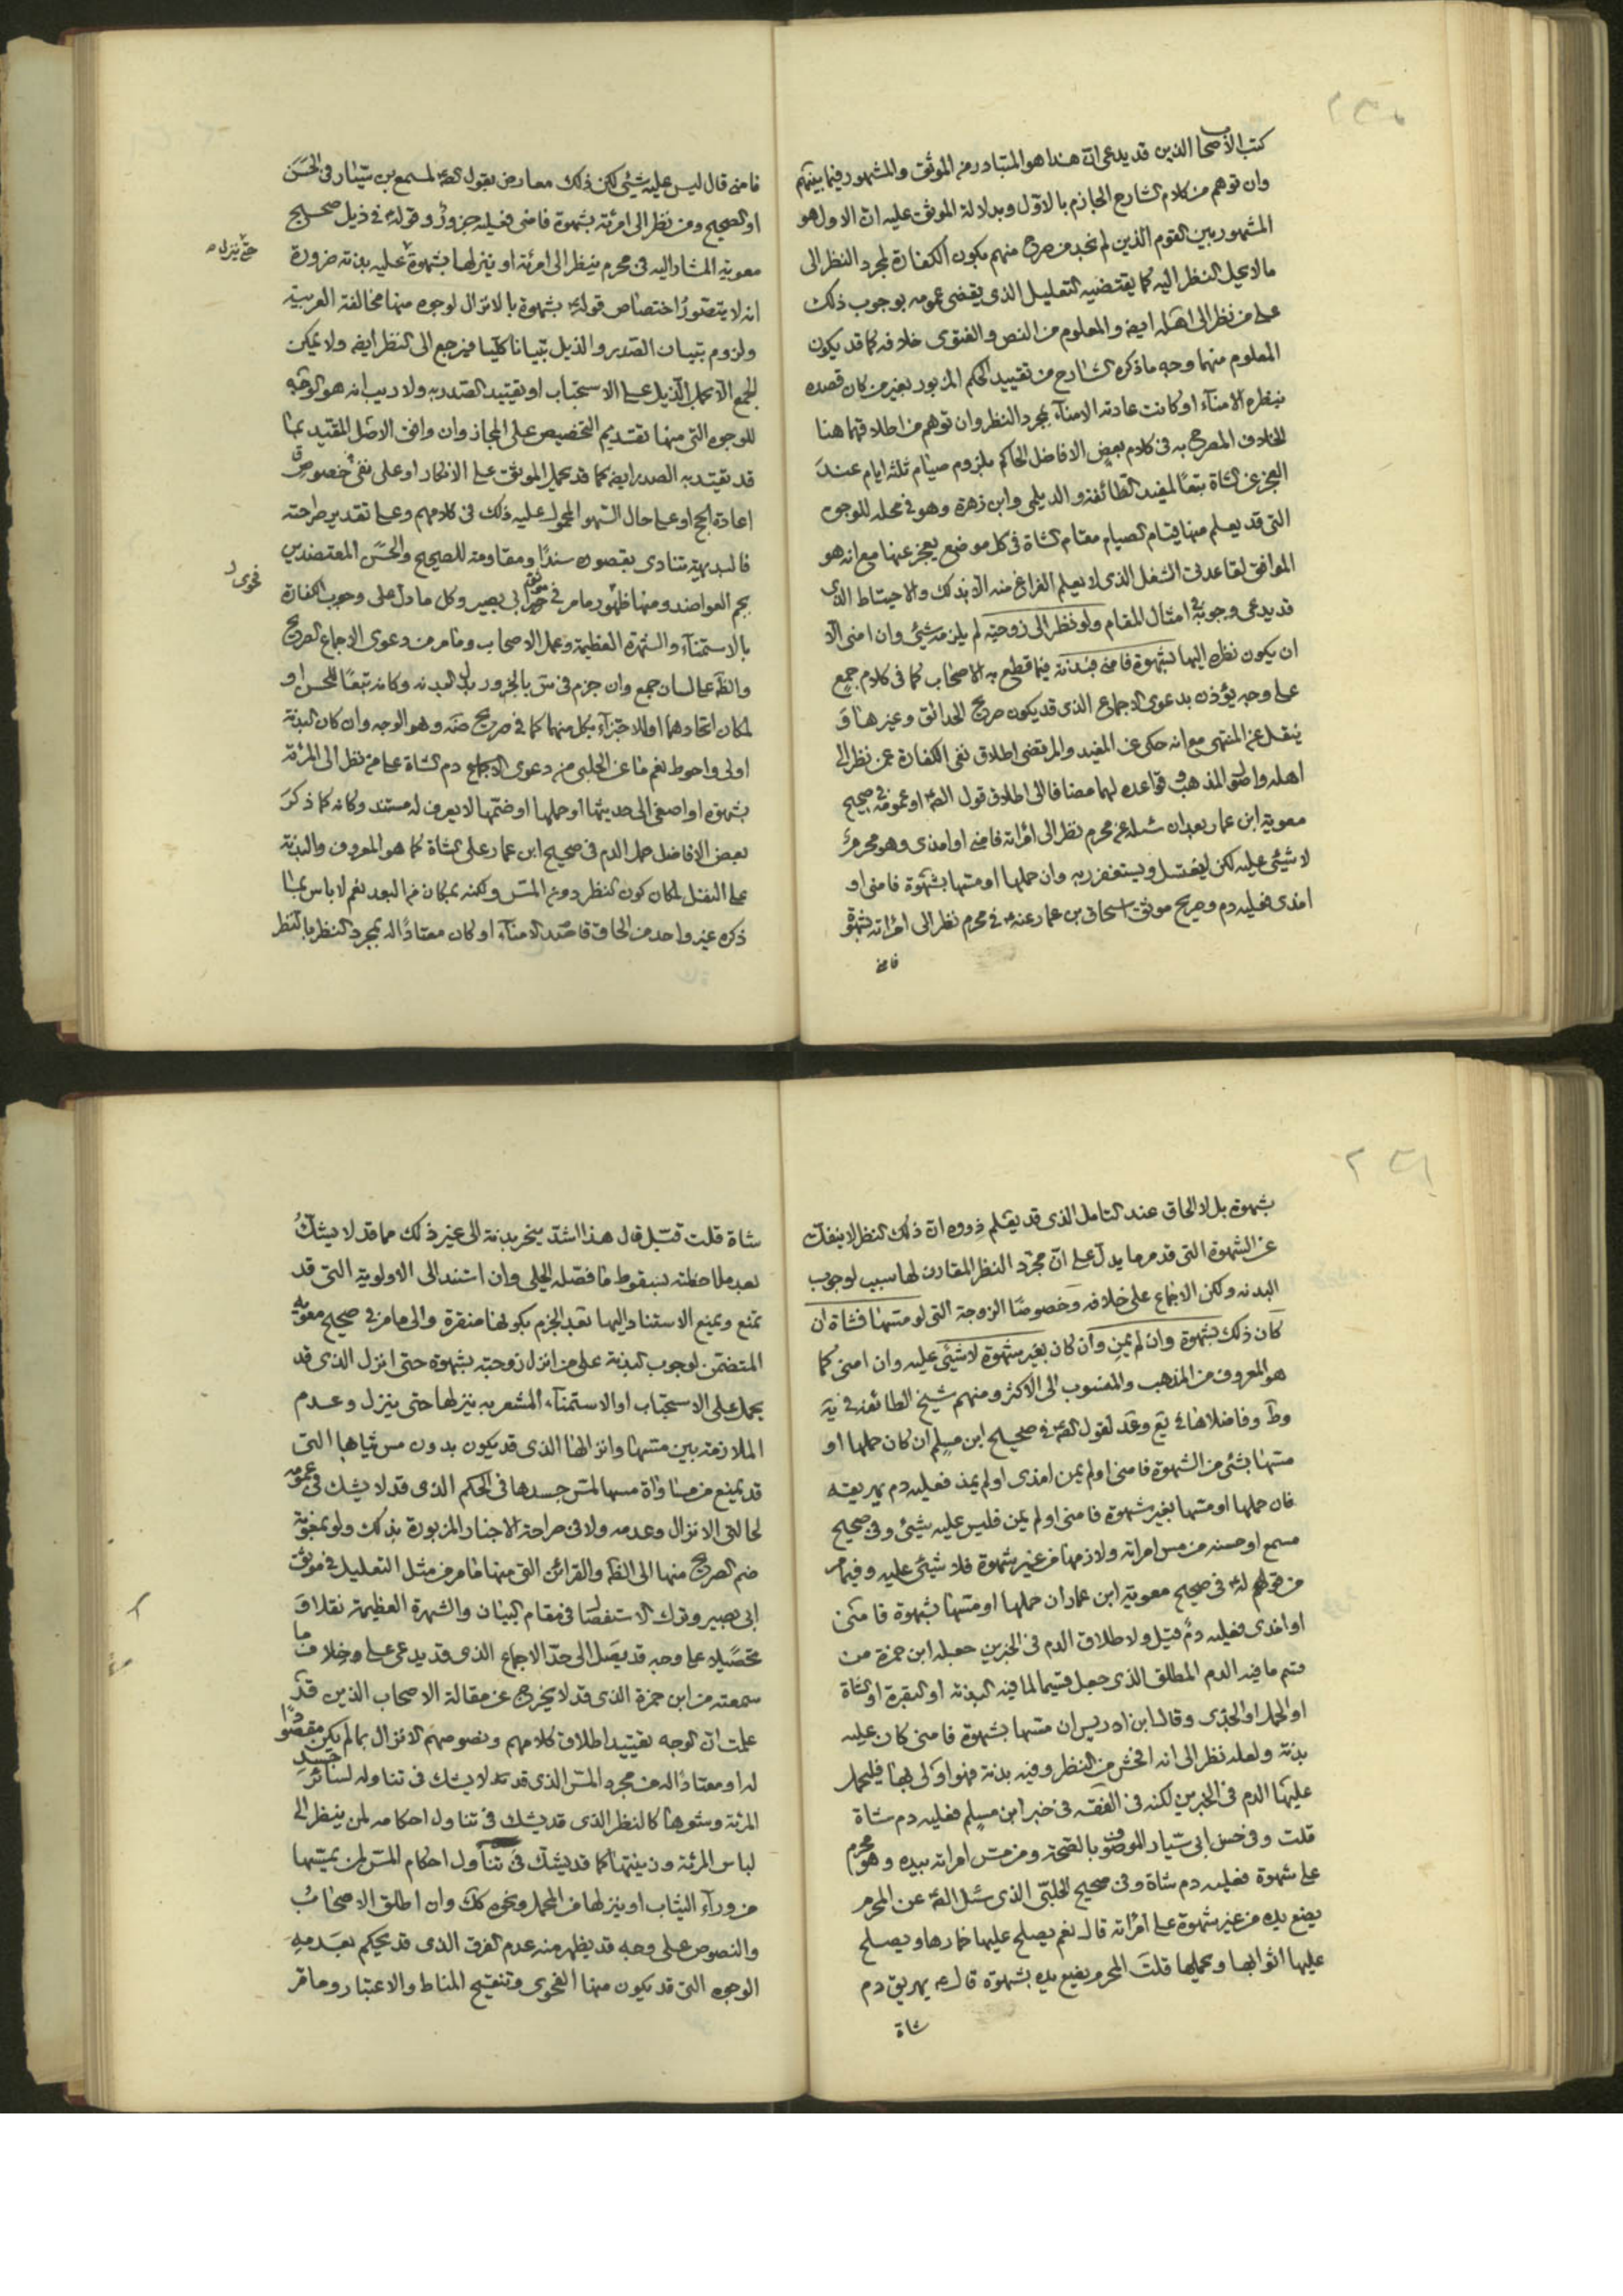 كتب الأصحاب الذين قد يدعى ان هذا هو المتبادر من الموثق والمشهور فيما بينهم
وان توهم من كلام الشارح الجازم بالاول وبدلالة الموثق عليه ان الاول هو
المشهور بين القوم الذين لم نجد من صرح منهم بكون الكفارة لمجرد النظر الى
ما لا يحل النظر اليه كما يقتضيه التعليل الذى يقضى عمومه بوجوب ذلك
على من نظر الى اهله ايضه والمعلوم من النص والفتوى خلافه كما قد يكون
المعلوم منهما وجه ما ذكره الشارح من تقييد الحكم المزبور بغير من كان قصده
بنظره الامنآء او كانت عادته الامنآء بمجرد النظر وان توهم من اطلاقهما هنا
الخلاف المصرح به فى كلام بعض الافاضل الحاكم بلزوم صيام ثلثة ايام عند
العجز عن الشاة تبعًا للمفيد الطائفة والديلمى وابن زهرة وهو فى محله للوجوه
التى قد يعلم منها قيام الصيام مقام الشاة فى كل موضع يعجز عنها مع انه هو
الموافق لقاعدتى الشغل الذى لا يعلم الفراغ منه الا بذلك والاحتياط الذى
قد يدعى وجوبه فى امثال المقام ولو نظر الى زوجته لم يلزمه شيئ وان امنى الا
ان يكون نظره اليها بشهوة فامنى فبدنة فيما قطع به الاصحاب كما فى كلام جمع
على وجه يؤذن بدعوى الاجماع الذى قد يكون صريح الحدائق وغيرها و
ينقل عن المنتهى مع انه حكى عن المفيد والمرتضى اطلاق نفى الكفارة عمن نظر الى
اهله واصول المذهب وقواعده لهما مضافا الى اطلاق قول الصه او عمومه فى صحيح
معوية ابن عمار بعد ان سئله عن محرم نظر الى امرأته فامنى او امذى وهو محرم
لا شيئ عليه لكن ليغتسل ويستغفر ربه وان حملها او مسها بشهوة فامنى او
امذى فعليه دم وصريح موثق اسحاق بن عمار عنه فى محرم نظر الى امرأته بشهوة
فامنى
فامنى قال ليس عليه شيئ لكن ذلك معارض بقول الصه لمسمع بن سيار فى الحسن
او الصحيح ومن نظر الى امرئته بشهوة فامنى فعليه جزور وقوله فى ذيل صحيح
معوية المشار اليه فى محرم ينظر الى امرئته او ينزلها بشهوة عليه بدنة ضرورة
حتى ينزل
انه لا يتصور اختصاص قوله بشهوة بالانزال لوجوه منها مخالفة العربية
ولزوم تبيان الصدر والذيل تبيانا كليا فيرجع الى النظر ايضه ولا يمكن
الجمع الا بحمل الذيل على الاستحباب او تقييد الصدر به ولا ريب انه هو الوجه
للوجوه التى منها تقديم التخصيص على المجاز وان وافق الاصل المقتيد بما
قد يقيد به الصدر ايضه كما قد يحمل الموثق على الانكار او على نفى خصوص
اعادة الحج او على حال السهو المحمول عليه ذلك فى كلامهم وعلى تقدير طرحه
فالبديهية تنادى بقصوره سندًا ومقاومة للصحيح والحسن المعتضدين
بجم العواضد ومنها ظهور ما مر فى موثق ابى بصير وكل ما دل على وجوب الكفارة
فحوى
بالاستمنآء والشهرة العظيمة وعمل الاصحاب وما مر من دعوى الاجماع الصريح
والظ على لسان جمع وان جزم فى س بالجزور بدل البدنة وكانه تبعًا للحسن او
لمكان اتحادهما او للاجتزآء بكل منهما كما فى صريح ضه وهو الوجه وان كان البدنة
اولى واحوط نعم ما عن الحلبى من دعوى الاجماع دم الشاة على من نظر الى المرئة
بشهوة او اصغى الى حديثها او حملها او ضمها لا يعرف له مستند وكانه كما ذكر
بعض الافاضل حمل الدم فى صحيح ابن عمار على الشاة كما هو المعروف والبدنة
على الفضل لمكان كون النظر دون المس ولكنه بمكان من البعد نعم لا باس بما
ذكره غير واحد من الحاق قاصد الامنآء او كان معتادًا له بمجرد النظر بالنظر
بشهوة بل لا الحاق عند التامل الذى قد يعلم ذووه ان ذلك النظر لا ينفك
عن الشهوة التى قد مر ما يدل على ان مجرد النظر المقارن لها سبب لوجوب
البدنة ولكن الاجماع على خلافه وخصوصًا الزوجة التى لو مسها فشاة ان
كان ذلك بشهوة وان لم يمن وان كان بغير شهوة لا شيئ عليه وان امنى كما
هو المعروف من المذهب والمنسوب الى الاكثر ومنهم شيخ الطائفة فى يه
وط وفاضلاها فى يع وعد لقول الصه فى صحيح ابن مسلم ان كان حملها او
مسها بشئ من الشهوة فامنى او لم يمن امذى او لم يمذ فعليه دم يهريقه
فان حملها او مسها بغير شهوة فامنى او لم يمن فليس عليه شيئ وفى صحيح
مسمع او حسنه من مس امراته ولازمها من غير شهوة فلا شيئ عليه وفيما مر
من قوله له فى صحيح معوية ابن عمار ان حملها او مسها بشهوة فامنى
او امذى فعليه دم قيل ولاطلاق الدم فى الخبرين جعله ابن حمزة من
قسم ما فيه الدم المطلق الذى جعل قسيما لما فيه البدنة او البقرة او الشاة
او الحمل او الجدى وقال ابن ادريس ان مسها بشهوة فامنى كان عليه
بدنة ولعله نظر الى انه افحش من النظر وفيه بدنة فهو اولى بها فليحمل
عليها الدم فى الخبرين لكنه فى الفقه فى خبر ابن مسلم فعليه دم شاة
قلت وفى حسن ابى سيار الموصوف بالصحة ومن مس امراته بيده وهو محرم
على شهوة فعليه دم شاة وفى صحيح الحلبى الذى سئل الصه عن المحرم
يضع يده من غير شهوة على امرأته قال نعم يصلح عليها خمارها ويصلح
عليها اثوابها ومحملها قلت المحرم يضع يده بشهوة قال يهريق دم
شاة
شاة قلت قبل قال هذا اشد ينحر بدنة الى غير ذلك مما قد لا يشك
بعد ملاحظته بسقوط ما فصله الحلى وان استند الى الاولوية التى قد
تمنع ويمنع الاستناد اليها بعد الجزم بكونها منقرة والى ما مر فى صحيح معوية
المتضمن لوجوب البدنة على من انزل زوجته بشهوة حتى انزل الذى قد
يحمل على الاستحباب او الاستمنآء المشعر به ينزلها حتى ينزل وعدم
الملازمة بين مسها وانزالها الذى قد يكون بدون مس ثيابها التى
قد يمنع من مساواة مسها لمس جسدها فى الحكم الذى قد لا يشك فى عمومه
لحالتى الانزال وعدمه ولا فى صراحة الاخبار المزبورة بذلك ولو بمعونة
ضم الصريح منها الى الظ والقرائن التى منها ما مر من مثل التعليل فى موثق
ابى بصير وترك الاستفصال فى مقام البيان والشهرة العظيمة نقلا و
تحصيلا على وجه قد يصل الى حد الاجماع الذى قد يدعى على وخلاف ما
سمعته من ابن حمزة الذى قد لا يخرج عن مقالة الاصحاب الذين قد
علمت ان الوجه تقييد اطلاق كلامهم ونصوصهم الانزال بما لم يكن مقصودًا
له او معتادًا له من مجرد المس الذى قد لا يشك فى تناوله لسائر جسد
المرئة وشعرها كالنظر الذى قد يشك فى تناول احكامه لمن ينظر الى
لباس المرئة وزينتها كما قد يشك فى تناول احكام المس لمن يمسها
من ورآء الثياب او ينزلها من المحمل ونحوه كك وان اطلق الاصحاب
والنصوص على وجه قد يظهر منه عدم الفرق الذى قد يحكم بعدمه
الوجوه التى قد يكون منها الفحوى وتنقيح المناط والاعتبار وما مر